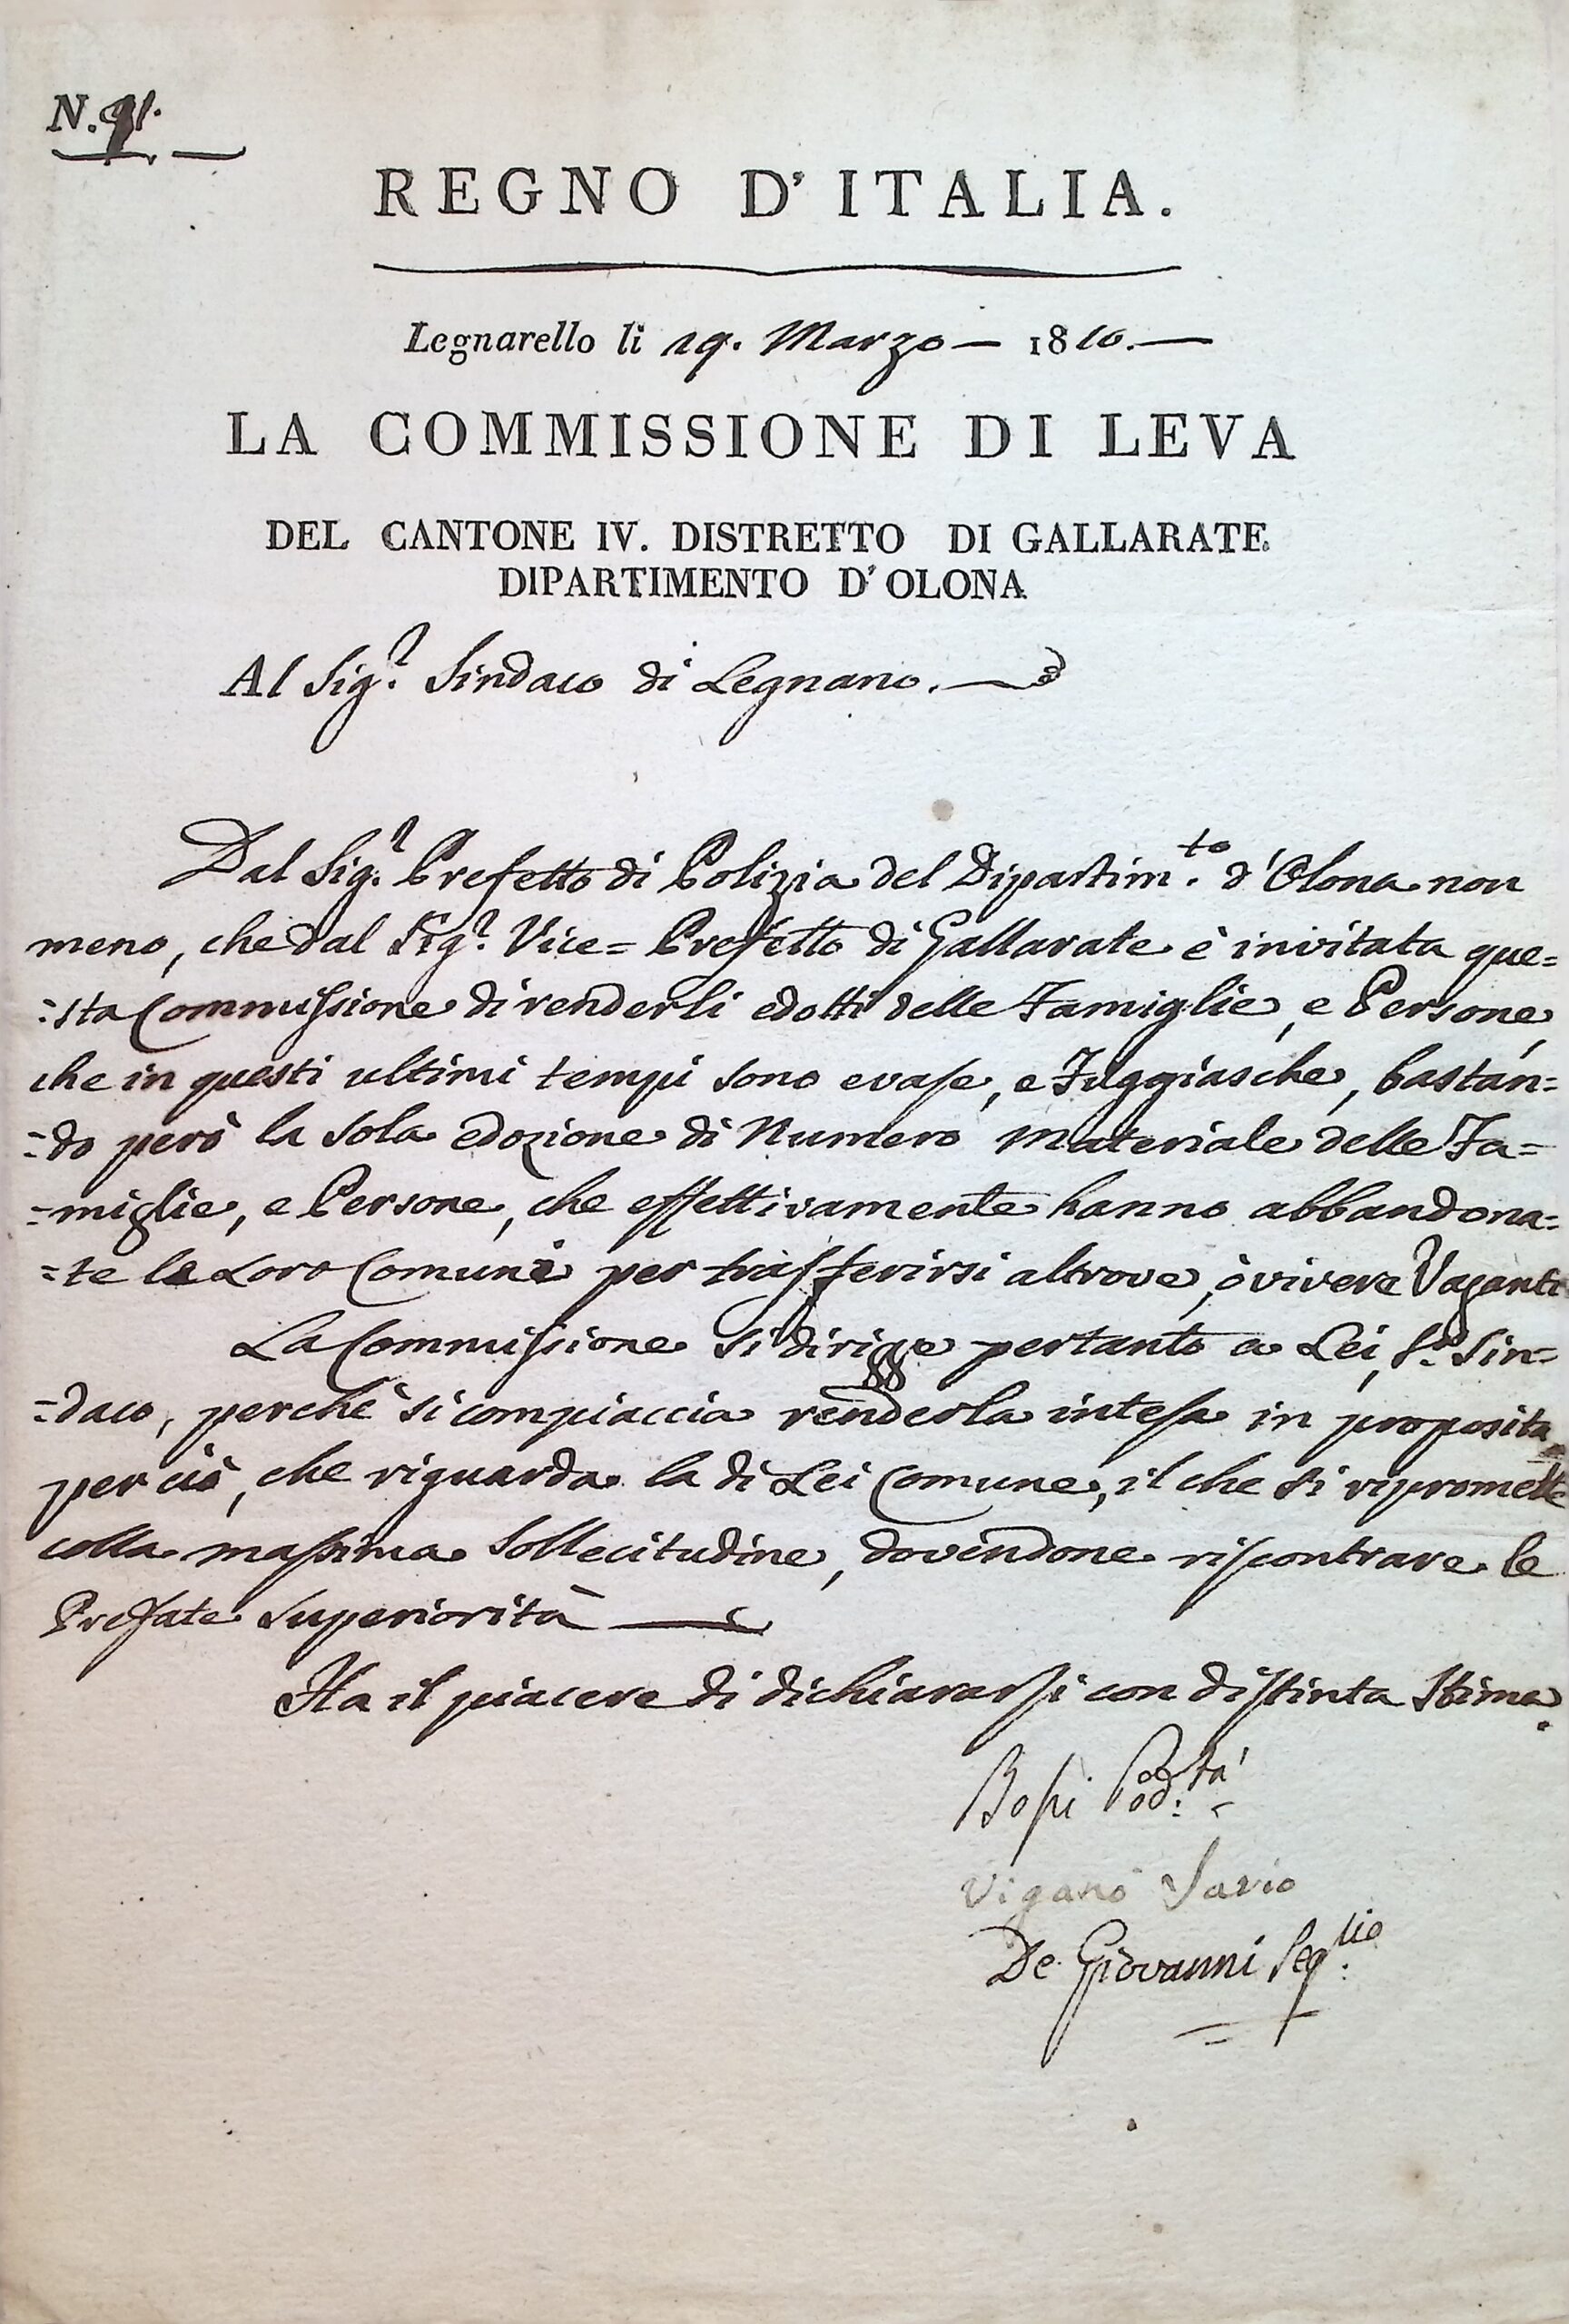 N. 91.
REGNO D'ITALIA.
Legnarello li 19. Marzo — 1810. —
LA COMMISSIONE DI LEVA
DEL CANTONE IV. DISTRETTO DI GALLARATE
DIPARTIMENTO D'OLONA
Al Sig.r Sindaco di Legnano. —
Dal Sig.r Prefetto di Polizia del Dipartim.to d'Olona non
meno, che dal Sig.r Vice= Prefetto di Gallarate è invitata que=
=sta Commissione di renderli edotti delle Famiglie, e Persone,
che in questi ultimi tempi sono evase, e Fuggiasche, bastan=
=do però la sola edozione di Numero materiale delle Fa=
=miglie, e Persone, che effettivamente hanno abbandona=
=te le Loro Comuni per trasfferirsi altrove, ò vivere Vaganti
La Commissione si dirigge pertanto a Lei, S.r Sin=
=daco, perchè si compiaccia renderla intesa in proposito
per ciò, che riguarda la di Lei Comune, il che si ripromette
colla massima sollecitudine, dovendone riscontrare le
Prefate Superiorità —
Ha il piacere di dichiararsi con distinta Stima.
Bossi Pod.tà
Viganò Savio
De Giovanni Seg.rio